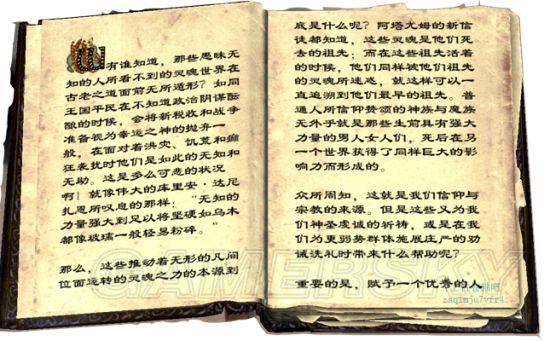 有谁知道，那些愚昧无
知的人所看不到的灵魂世界在
古老之道面前无所遁形？如同
王国平民在不知道政治阴谋酝
酿的时候，会将新税收和战争
准备视为幸运之神的抛弃一
般，在面对着洪灾、饥荒和癫
狂袭扰时他们是如此的无知和
无助。这是多么可悲的状况
啊！就像伟大的库里安·达尼
扎恩所叹息的那样：“无知的
力量强大到足以将坚硬如乌木
都像玻璃一般轻易粉碎。”
那么，这些推动着无形的凡间
位面运转的灵魂之力的本源到
底是什么呢？阿塔尤姆的新信
徒都知道，这些灵魂是他们死
去的祖先；而在这些祖先活着
的时候，他们同样被他们祖先
的灵魂所迷惑，就这样可以一
直追溯到他们最早的祖先。普
通人所信仰赞颂的神族与魔族
无外乎就是那些生前具有强大
力量的男人女人们，死后在另
一个世界获得了同样巨大的影
响力而形成的。
众所周知，这就是我们信仰与
宗教的来源。但是这些又为我
们神圣虔诚的祈祷，或是在我
们为更弱势群体施展庄严的劝
诫洗礼时带来什么帮助呢？
重要的是，赋予一个优秀的人
GAMERSKY